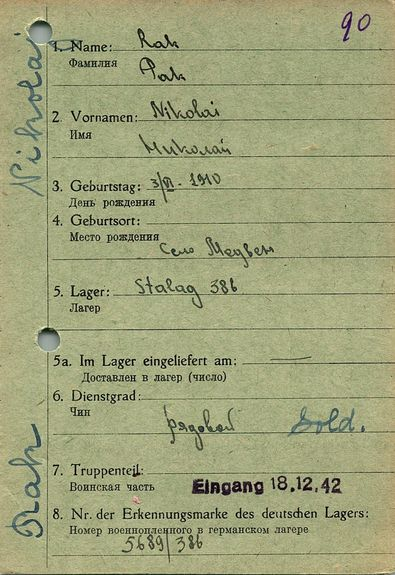 90
1. Name: Rak
Фамилия Рак
2. Vornamen: Nikolai
Имя
Николай
3. Geburtstag: 3/VI. 1910
День рождения
4. Geburtsort:
Место рождения
Село Медвен
5. Lager: Stalag 386
Лагерь
5a. Im Lager eingeliefert am: —
Доставлен в лагерь (число)
6. Dienstgrad:
Чин
рядовой Sold.
7. Truppenteil:
Воинская часть
Eingang 18.12.42
8. Nr. der Erkennungsmarke des deutschen Lagers:
Номер военнопленного в германском лагере
5689/386
Rak Nikolai